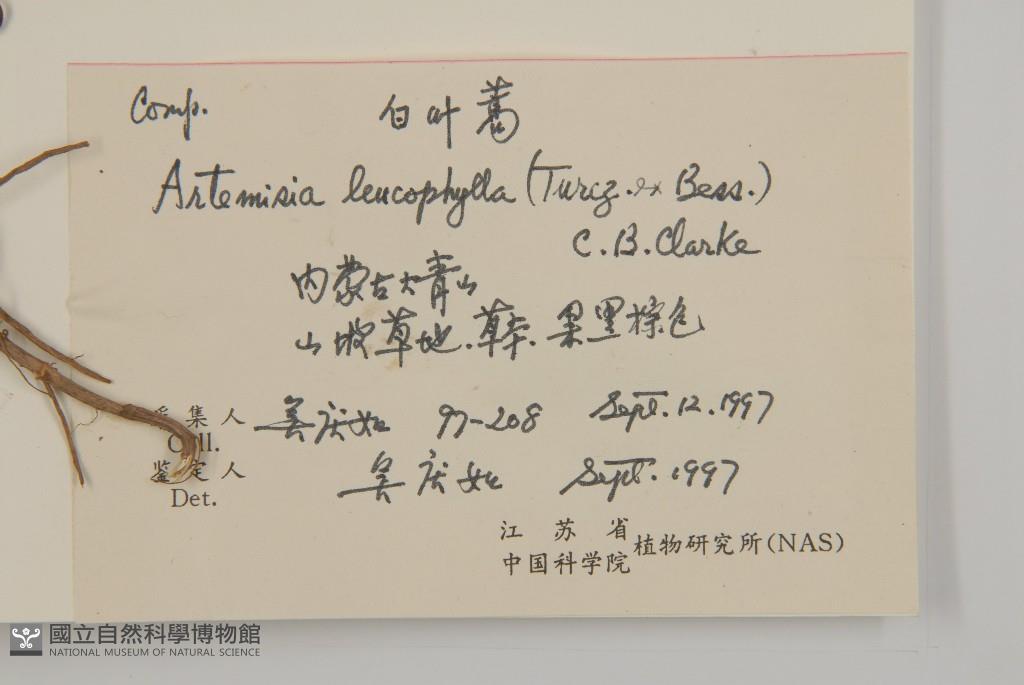 Comp. 白叶蒿
Artemisia leucophylla (Turcz. ex Bess.)
C. B. Clarke
内蒙古大青山
山坡草地. 草本. 果黑棕色
采集人 吴庆如 97-208 Sept. 12. 1997
Coll.
鉴定人 吴庆如 Sept. 1997
Det.
江苏省
中国科学院 植物研究所(NAS)
國立自然科學博物館
NATIONAL MUSEUM OF NATURAL SCIENCE